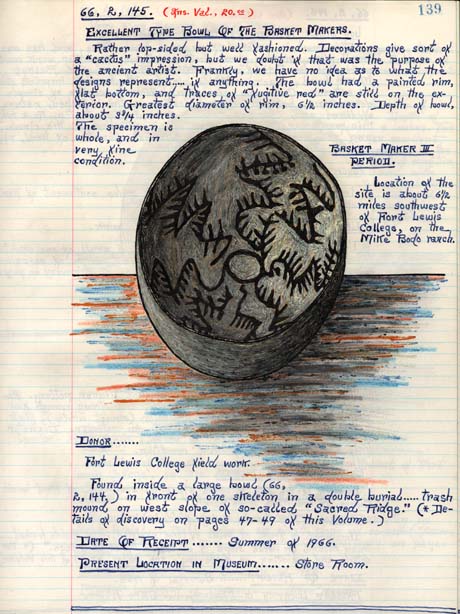 66, 2, 145. (Ins. Val., 20.00)
139
Excellent Type Bowl Of The Basket Makers.
Rather lop-sided but well fashioned. Decorations give sort of
a "cactus" impression, but we doubt if that was the purpose of
the ancient artist. Frankly, we have no idea as to what the
designs represent.... if anything. The bowl had a painted rim,
flat bottom, and traces of "fugitive red" are still on the ex-
terior. Greatest diameter of rim, 6 1/2 inches. Depth of bowl,
about 3 3/4 inches.
The specimen is
whole, and in
very fine
condition.
Basket Maker III
Period.
Location of the
site is about 6 1/2
miles southwest
of Fort Lewis
College, on the
Mike Bodo ranch.
Donor.......
Fort Lewis College field work.
Found inside a large bowl (66,
2, 144,) in front of one skeleton in a double burial..... trash
mound on west slope of so-called "Sacred Ridge." (* De-
tails of discovery on pages 47-49 of this Volume.)
Date Of Receipt ....... Summer of 1966.
Present Location in Museum....... Store Room.